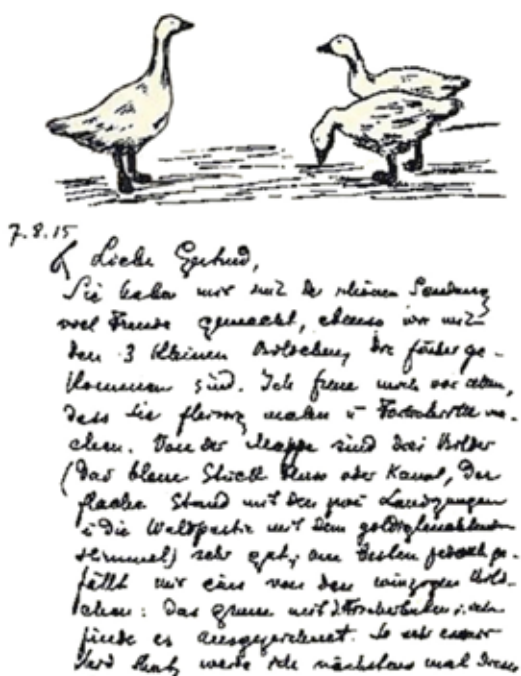 7.8.15
Liebe Gertrud,
Sie haben mir mit der schönen Sendung
viel Freude gemacht, ebenso wie mit
den 3 kleinen Bildchen, die früher ge-
kommen sind. Ich freue mich vor allem,
dass Sie fleissig malen u Fortschritte ma-
chen. Von der Mappe sind drei Bilder
(das blaue Stück Fluss oder Kanal, der
flache Strand mit den zwei Landzungen
u die Waldpartie mit dem
Himmel) sehr gut; am besten jedoch ge-
fällt mir eins von den winzigen Bild-
chen: das grüne mit
finde es ausgezeichnet. So
werde ich nächstens mal